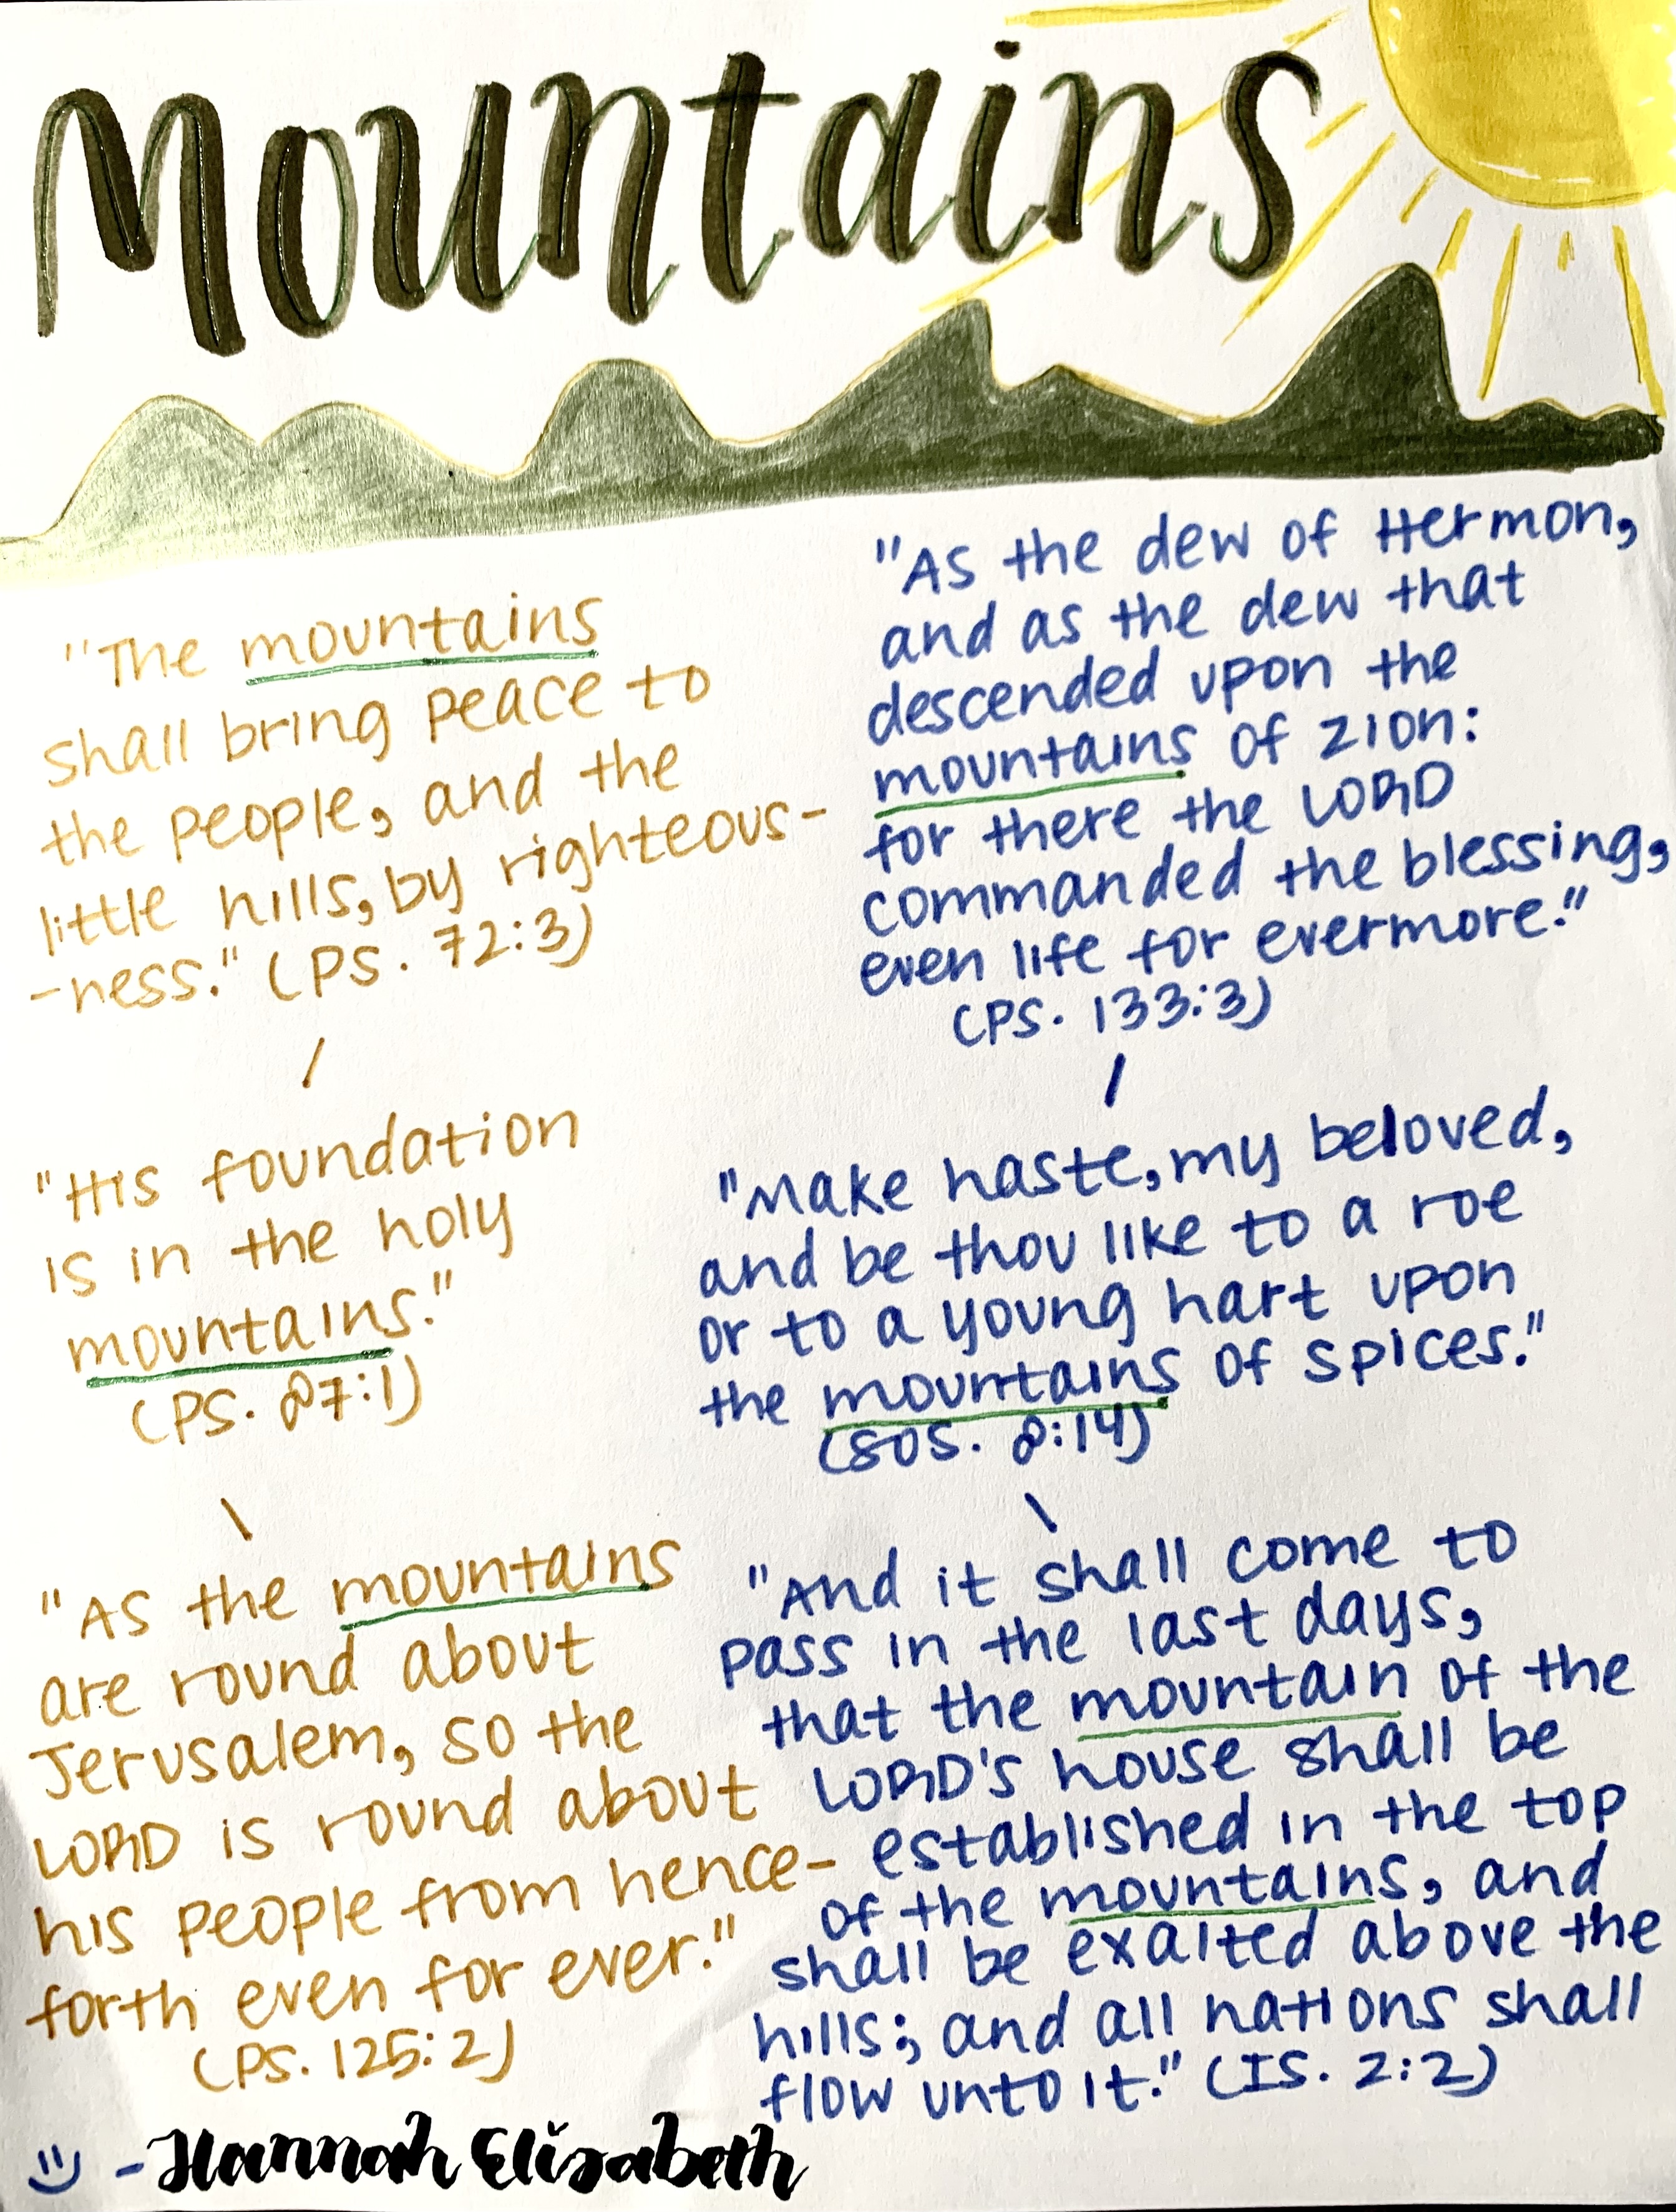 Mountains
"The mountains
shall bring peace to
the people, and the
little hills, by righteous-
-ness." (PS. 72:3)
"His foundation
is in the holy
mountains."
(PS. 87:1)
"As the mountains
are round about
Jerusalem, so the
LORD is round about
his people from hence-
forth even for ever."
(PS. 125:2)
"As the dew of Hermon,
and as the dew that
descended upon the
mountains of Zion:
for there the LORD
commanded the blessing,
even life for evermore."
(PS. 133:3)
"Make haste, my beloved,
and be thou like to a roe
or to a young hart upon
the mountains of spices."
(SOS. 8:14)
"And it shall come to
pass in the last days,
that the mountain of the
LORD's house shall be
established in the top
of the mountains, and
shall be exalted above the
hills; and all nations shall
flow unto it." (IS. 2:2)
- Hannah Elizabeth